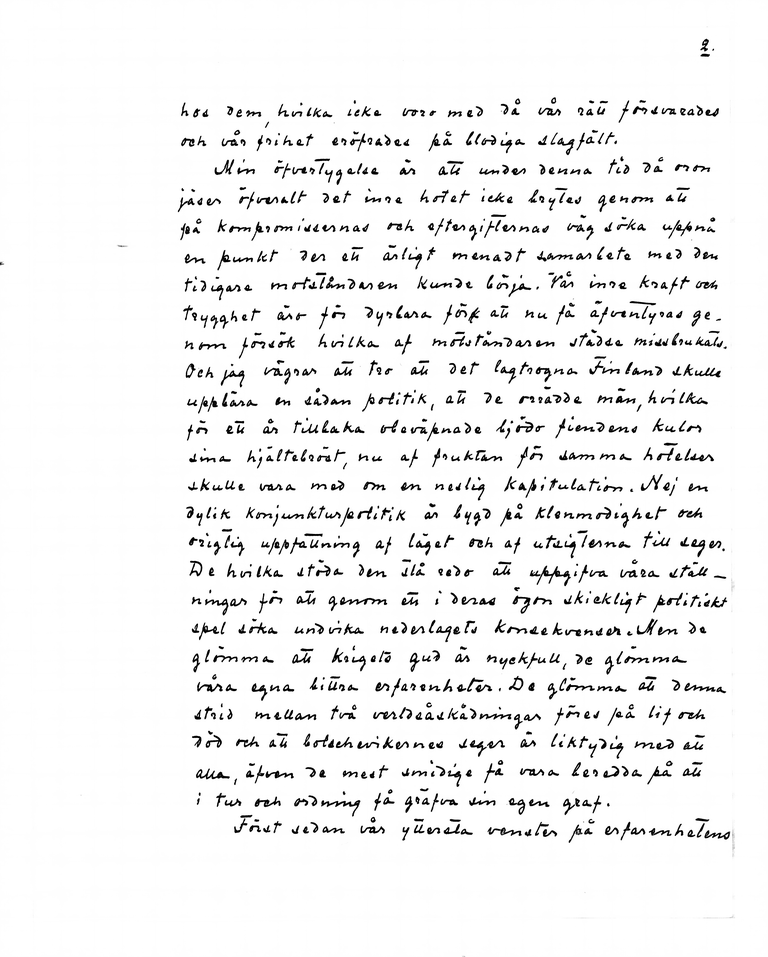 2.
hos dem, hvilka icke voro med då vår rätt försvarades
och vår frihet eröfrades på blodiga slagfält.
Min öfvertygelse är att under denna tid då oron
jäser öfveralt det inre hotet icke brytes genom att
på kompromissernas och eftergifternas väg söka uppnå
en punkt der ett ärligt menadt samarbete med den
tidigare motståndaren kunde börja. Vår inre kraft och
trygghet äro för dyrbara för att nu få äfventyras ge-
nom försök hvilka af motståndaren städse missbrukats.
Och jag vägrar att tro att det lagtrogna Finland skulle
uppbära en sådan politik, att de orrädde män, hvilka
för ett år tillbaka obeväpnade bjödo fiendens kulor
sina hjältebröst, nu af fruktan för samma hotelser
skulle vara med om en neslig kapitulation. Nej en
dylik konjunkturpolitik är bygd på klenmodighet och
origtig uppfattning af läget och af utsigterna till seger.
De hvilka stöda den stå redo att uppgifva våra ställ-
ningar för att genom ett i deras ögon skickligt politiskt
spel söka undvika nederlagets konsekvenser. Men de
glömma att krigets gud är nyckfull, de glömma
våra egna bittra erfarenheter. De glömma att denna
strid mellan två verldsåskådningar föres på lif och
död och att bolschevikernes seger är liktydig med att
alla, äfven de mest smidige få vara beredda på att
i tur och ordning få gräfva sin egen graf.
Först sedan vår yttersta venster på erfarenhetens